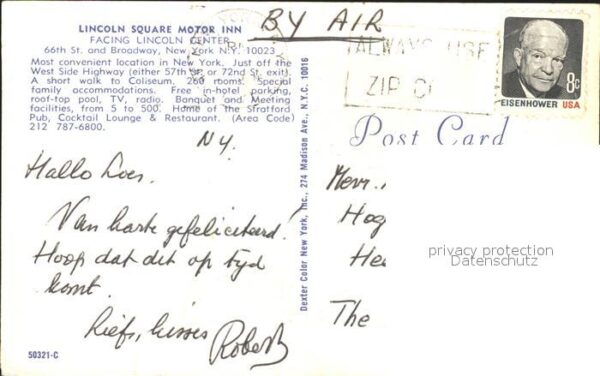 LINCOLN SQUARE MOTOR INN
FACING LINCOLN CENTER
66th St. and Broadway, New York N.Y. 10023
Most convenient location in New York. Just off the
West Side Highway (either 57th or 72nd St. exit).
A short walk to Coliseum. 260 rooms. Special
family accommodations. Free in-hotel parking,
roof-top pool, TV, radio. Banquet and Meeting
facilities, from 5 to 500. Home of the Stratford
Pub, Cocktail Lounge & Restaurant. (Area Code)
212 787-6800.
BY AIR
ALWAYS USE
ZIP CO
8c
EISENHOWER USA
Post Card
N.Y.
Hallo Loes.
Van harte gefeliciteerd!
Hoop dat dit op tijd
komt.
Liefs, kisses
Robert
50321-C
Dexter Color New York, Inc., 274 Madison Ave., N.Y.C. 10016
Mevr.
Hog
Hee
The
privacy protection
Datenschutz